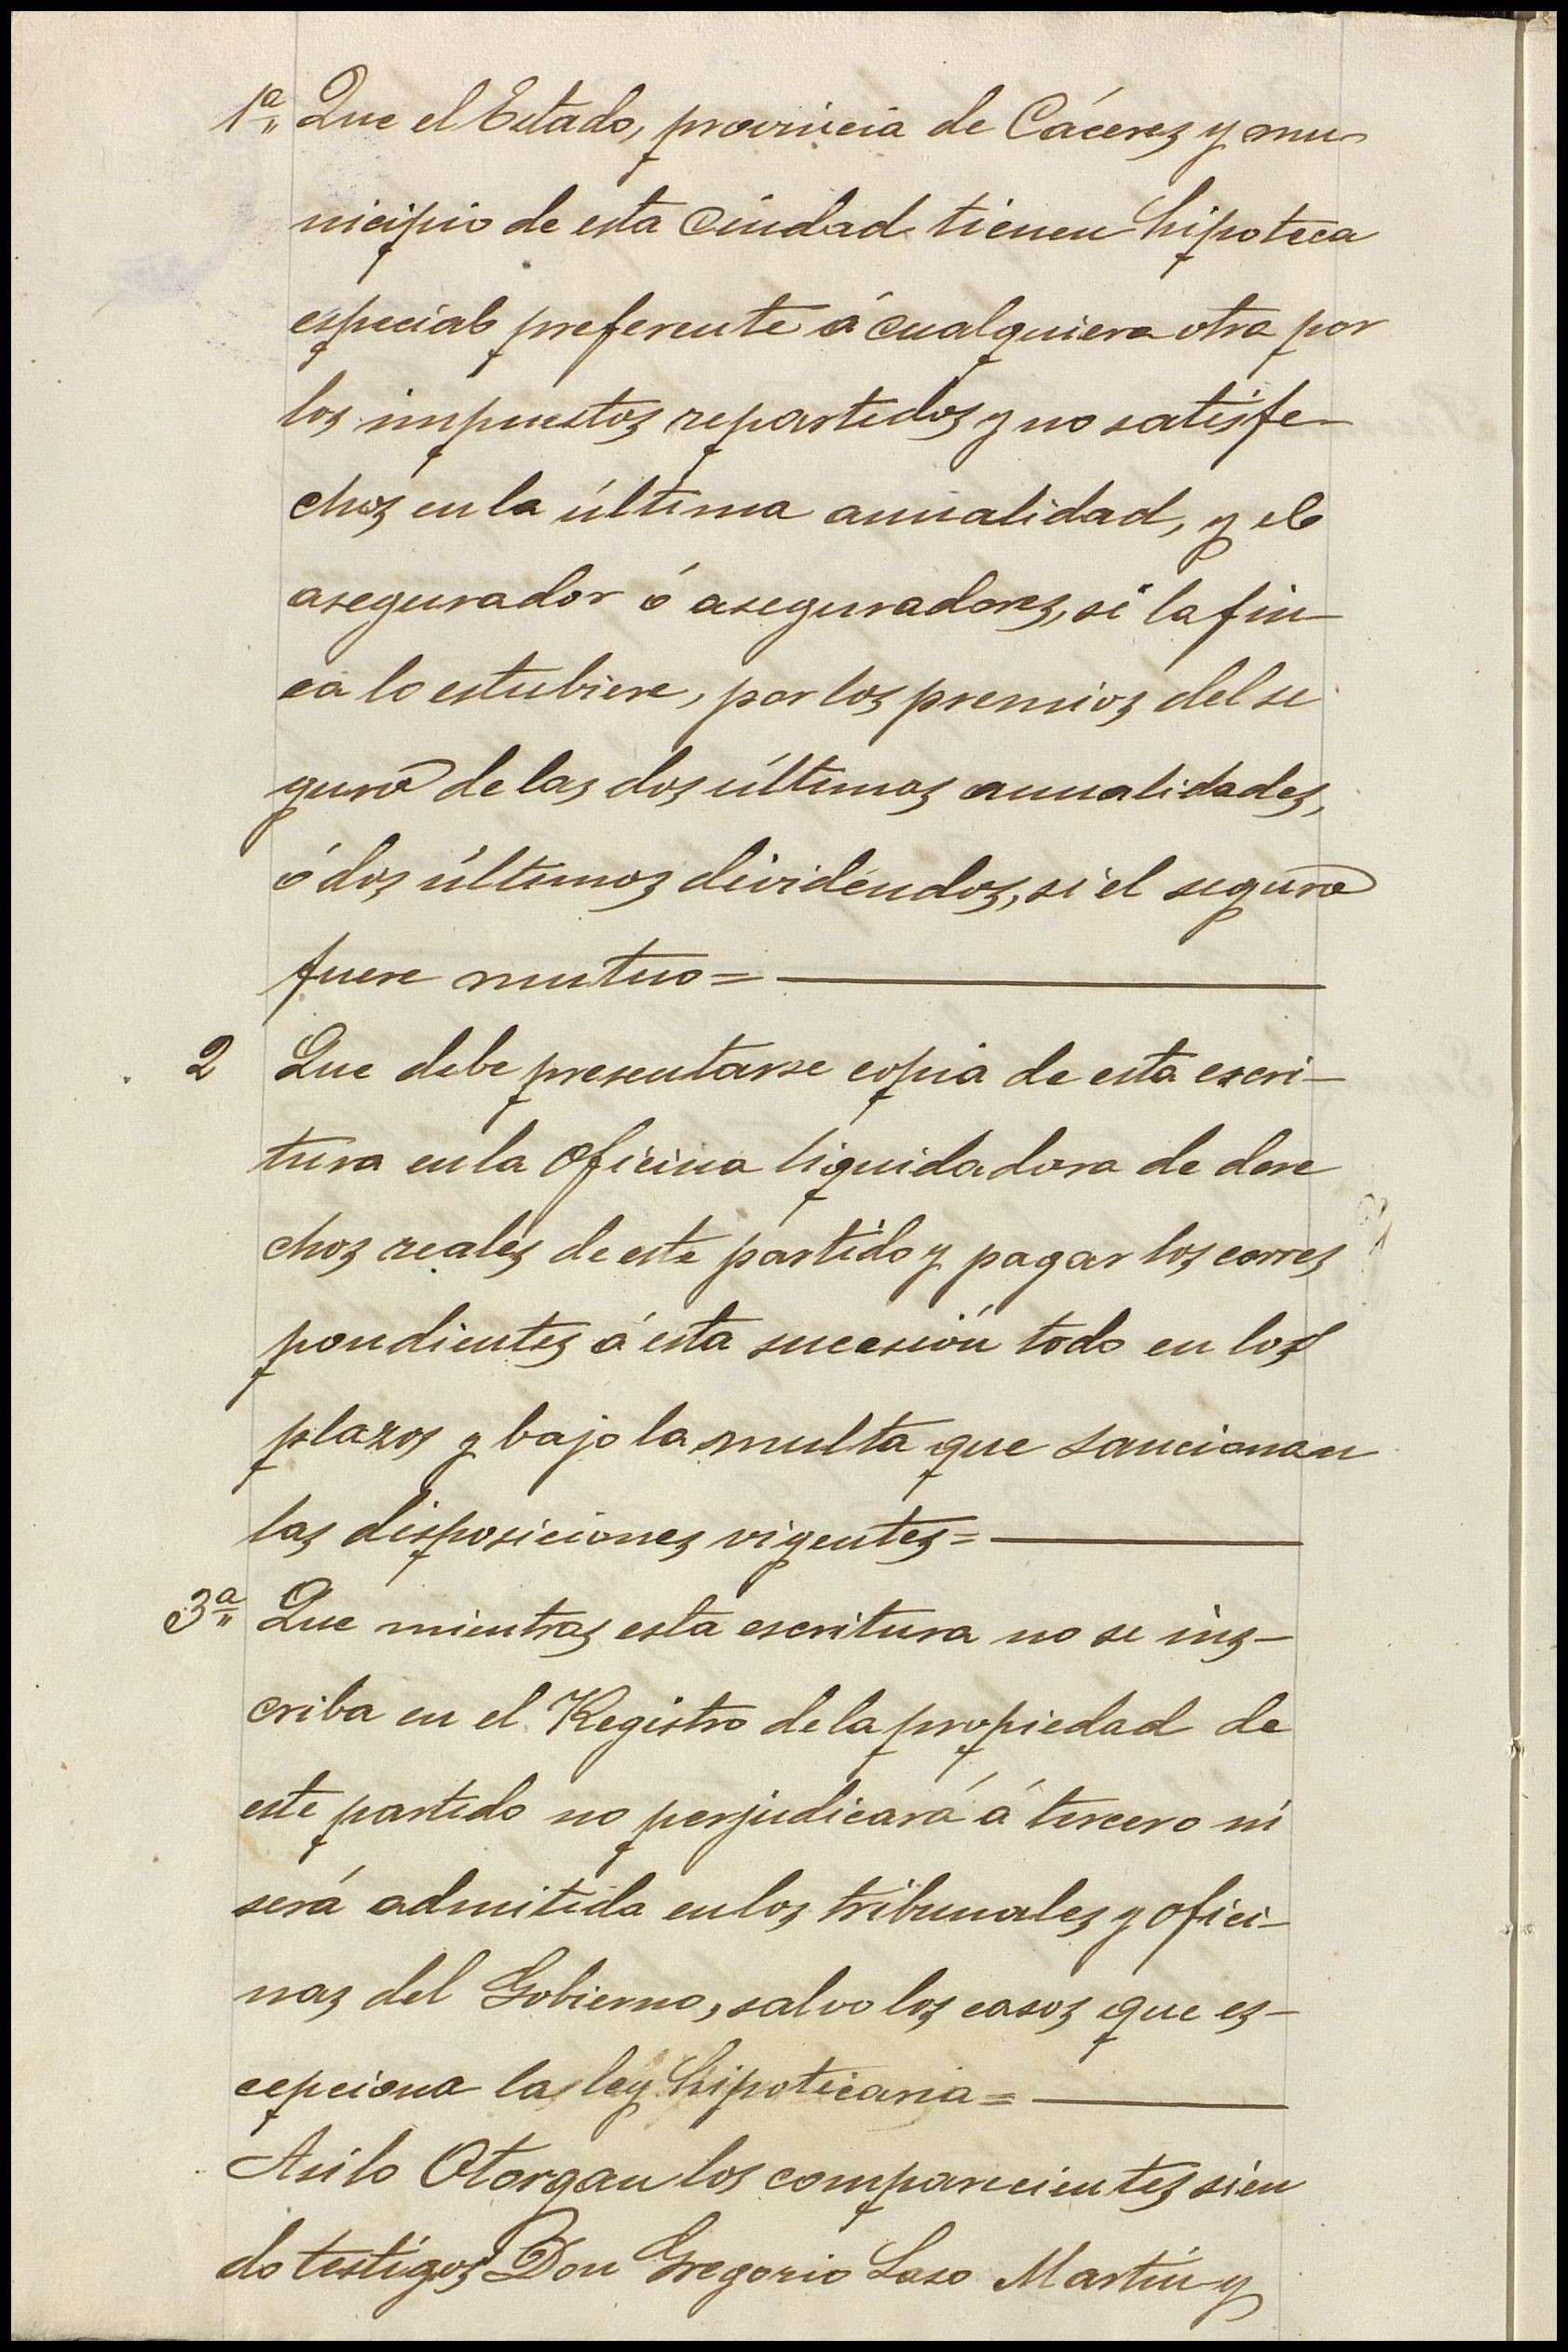 1ª Que el Estado, provincia de Cáceres y mu-
nicipio de esta Ciudad tienen hipoteca
especial preferente á cualquiera otra por
los impuestos repartidos y no satisfe-
chos en la última anualidad, y el
asegurador ó aseguradores, si la fin-
ca lo estubiere, por los premios del se
guro de las dos últimas anualidades,
ó dos últimos dividendos, si el seguro
fuere mutuo=
2 Que debe presentarse copia de esta escri-
tura en la Oficina liquidadora de dere
chos reales de este partido y pagar los corres
pondientes á esta sucesión todo en los
plazos y bajo la multa que sancionan
las disposiciones vigentes=
3ª Que mientras esta escritura no se ins-
criba en el Registro de la propiedad de
este partido no perjudicará á tercero ni
será admitida en los tribunales y ofici-
nas del Gobierno, salvo los casos que es-
cepciona la ley hipotecaria=
Asilo Otorgan los comparecientes sien
do testigos Don Gregorio Laso Martín y